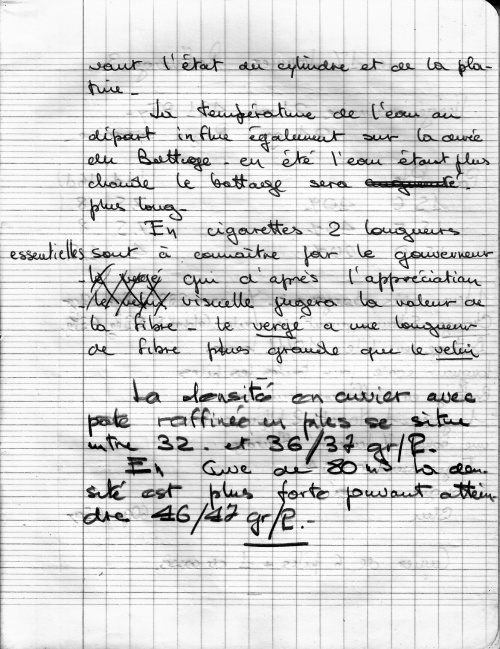 vant l'état du cylindre et de la pla-
tine -
La température de l'eau au
départ influe également sur la durée
du Battage - en été l'eau étant plus
chaude le battage sera
plus long -
En cigarettes 2 longueurs
essentielles sont à connaître par le gouverneur
qui d'après l'appréciation
visuelle jugera la valeur de
la fibre - le vergé a une longueur
de fibre plus grande que le velin
La densité en cuvier avec
pate raffinée en piles se situe
entre 32. et 36/37 gr/l.
En Cuve de 80 m3 la den
sité est plus forte pouvant attein
dre 46/47 gr/l. -